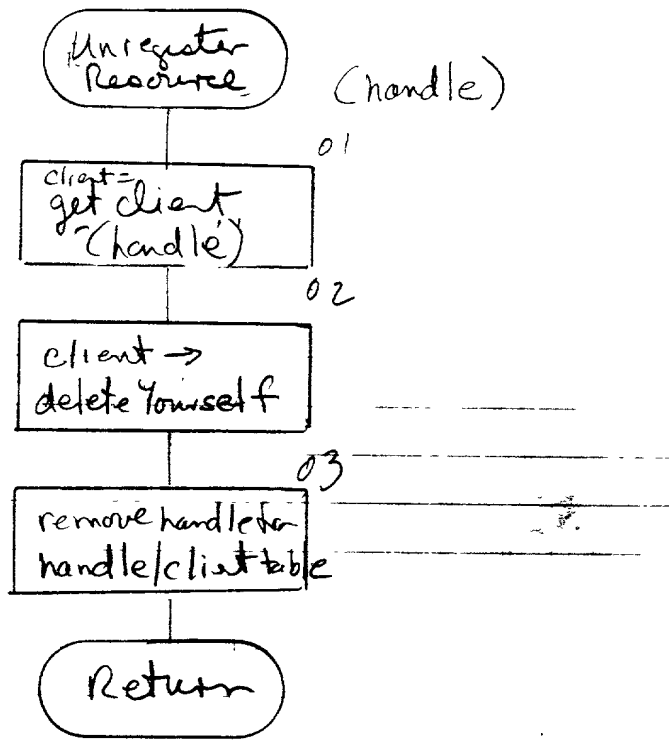 Unregister
Resource
(handle)
01
client=
get client
(handle)
02
client →
deleteYourself
03
remove handle for
handle/client table
Return